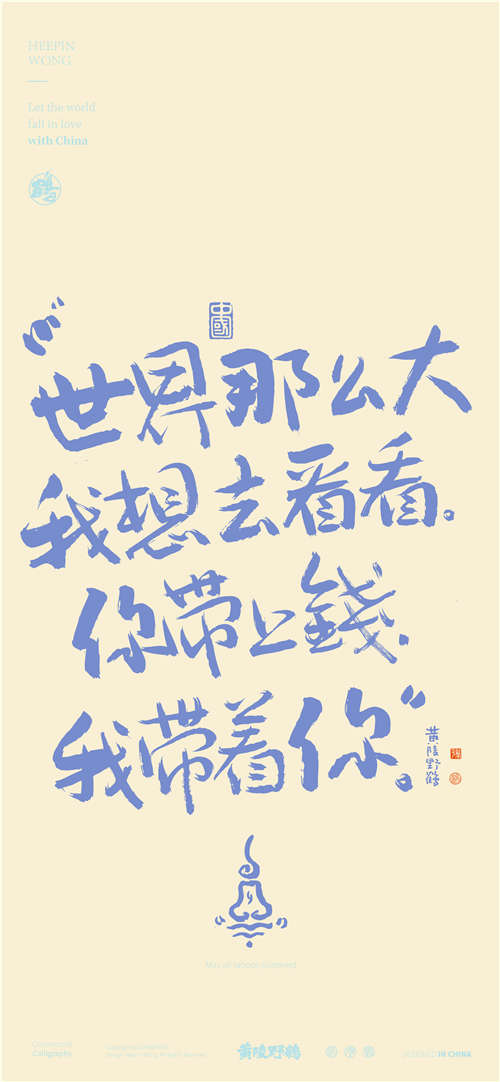 HEEPIN
WONG
Let the world
fall in love
with China
鹤
中國
“世界那么大
我想去看看。
你带上錢,
我带着你。”
黄陵野鹤
Calligraphy
黄陵野鹤
IN CHINA